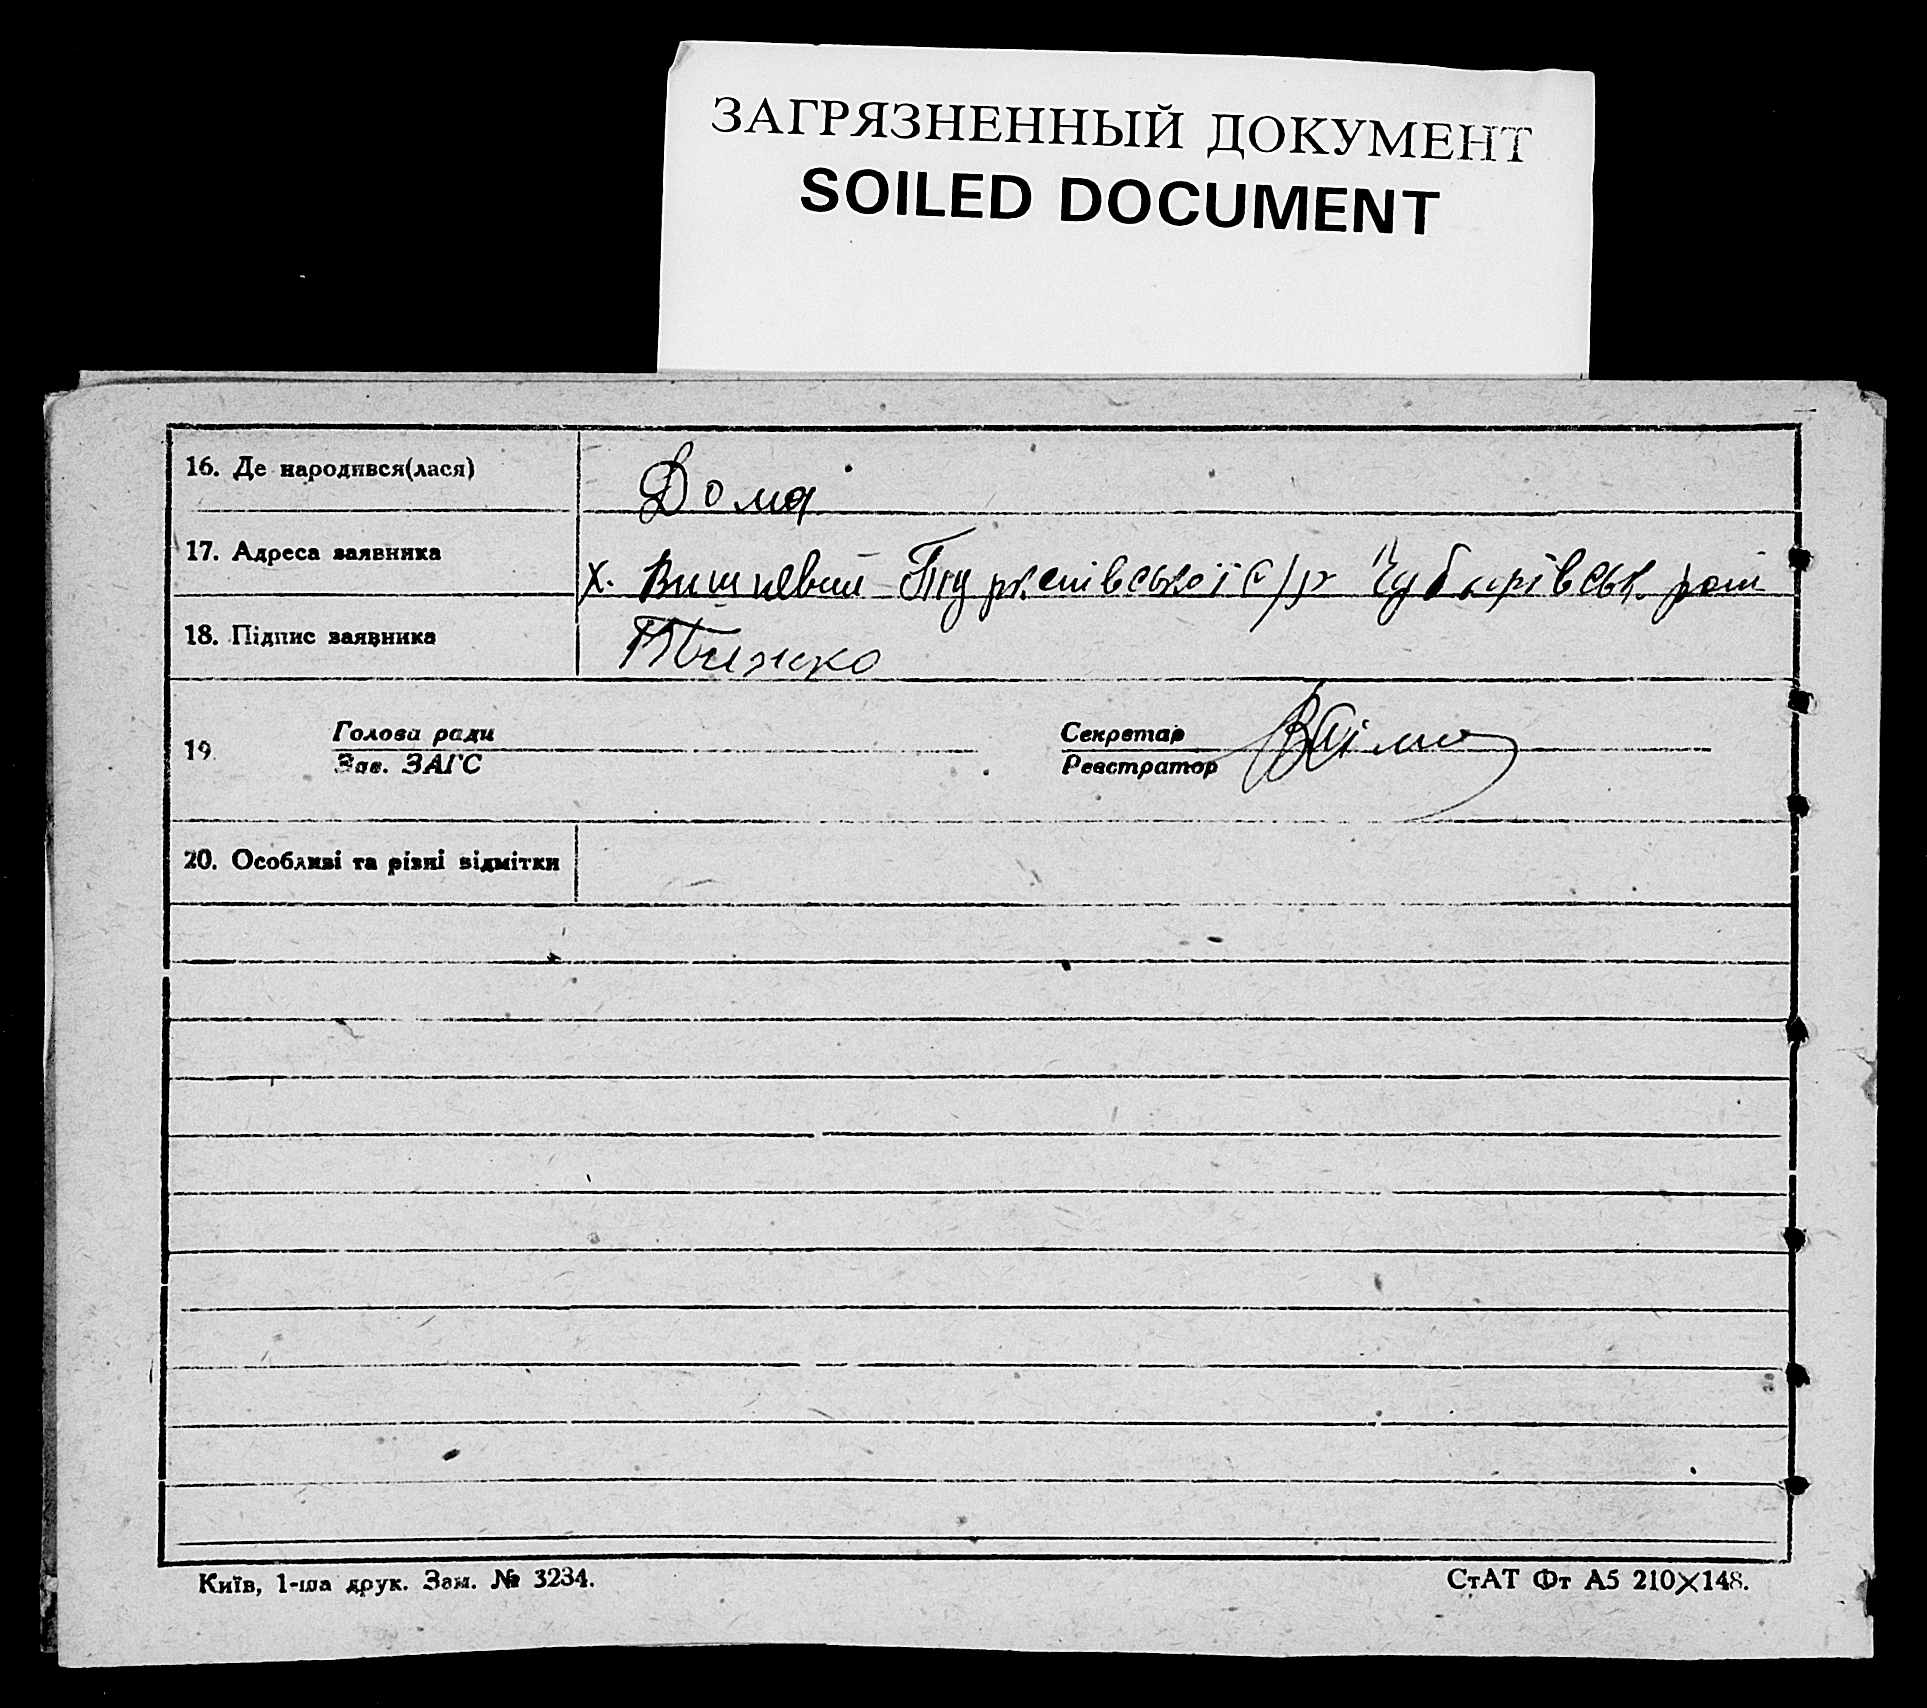 ЗАГРЯЗНЕННЫЙ ДОКУМЕНТ
SOILED DOCUMENT
16. Де народився(лася) Дома
17. Адреса заявника х. Вишневий Туркенівської с/р Чубарівськ. рай
18. Підпис заявника
19. Голова ради Секретар
Зав. ЗАГС Реєстратор
20. Особливі та різні відмітки
Київ, 1-ша друк. Зам. № 3234. СтАТ Фт А5 210×148.